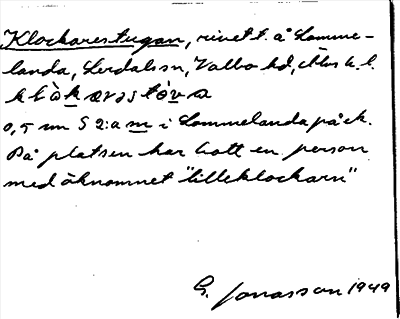 Klockarestugan, rivet t. å Lomme-
landa, Lerdals sn, Valbo hd, Älvs. l.
klòkarəstə́va
0,5 mm S 2:a m i Lommelanda på ek.
På platsen har bott en person
med öknamnet "lilleklockarn"
G. Jonasson 1949